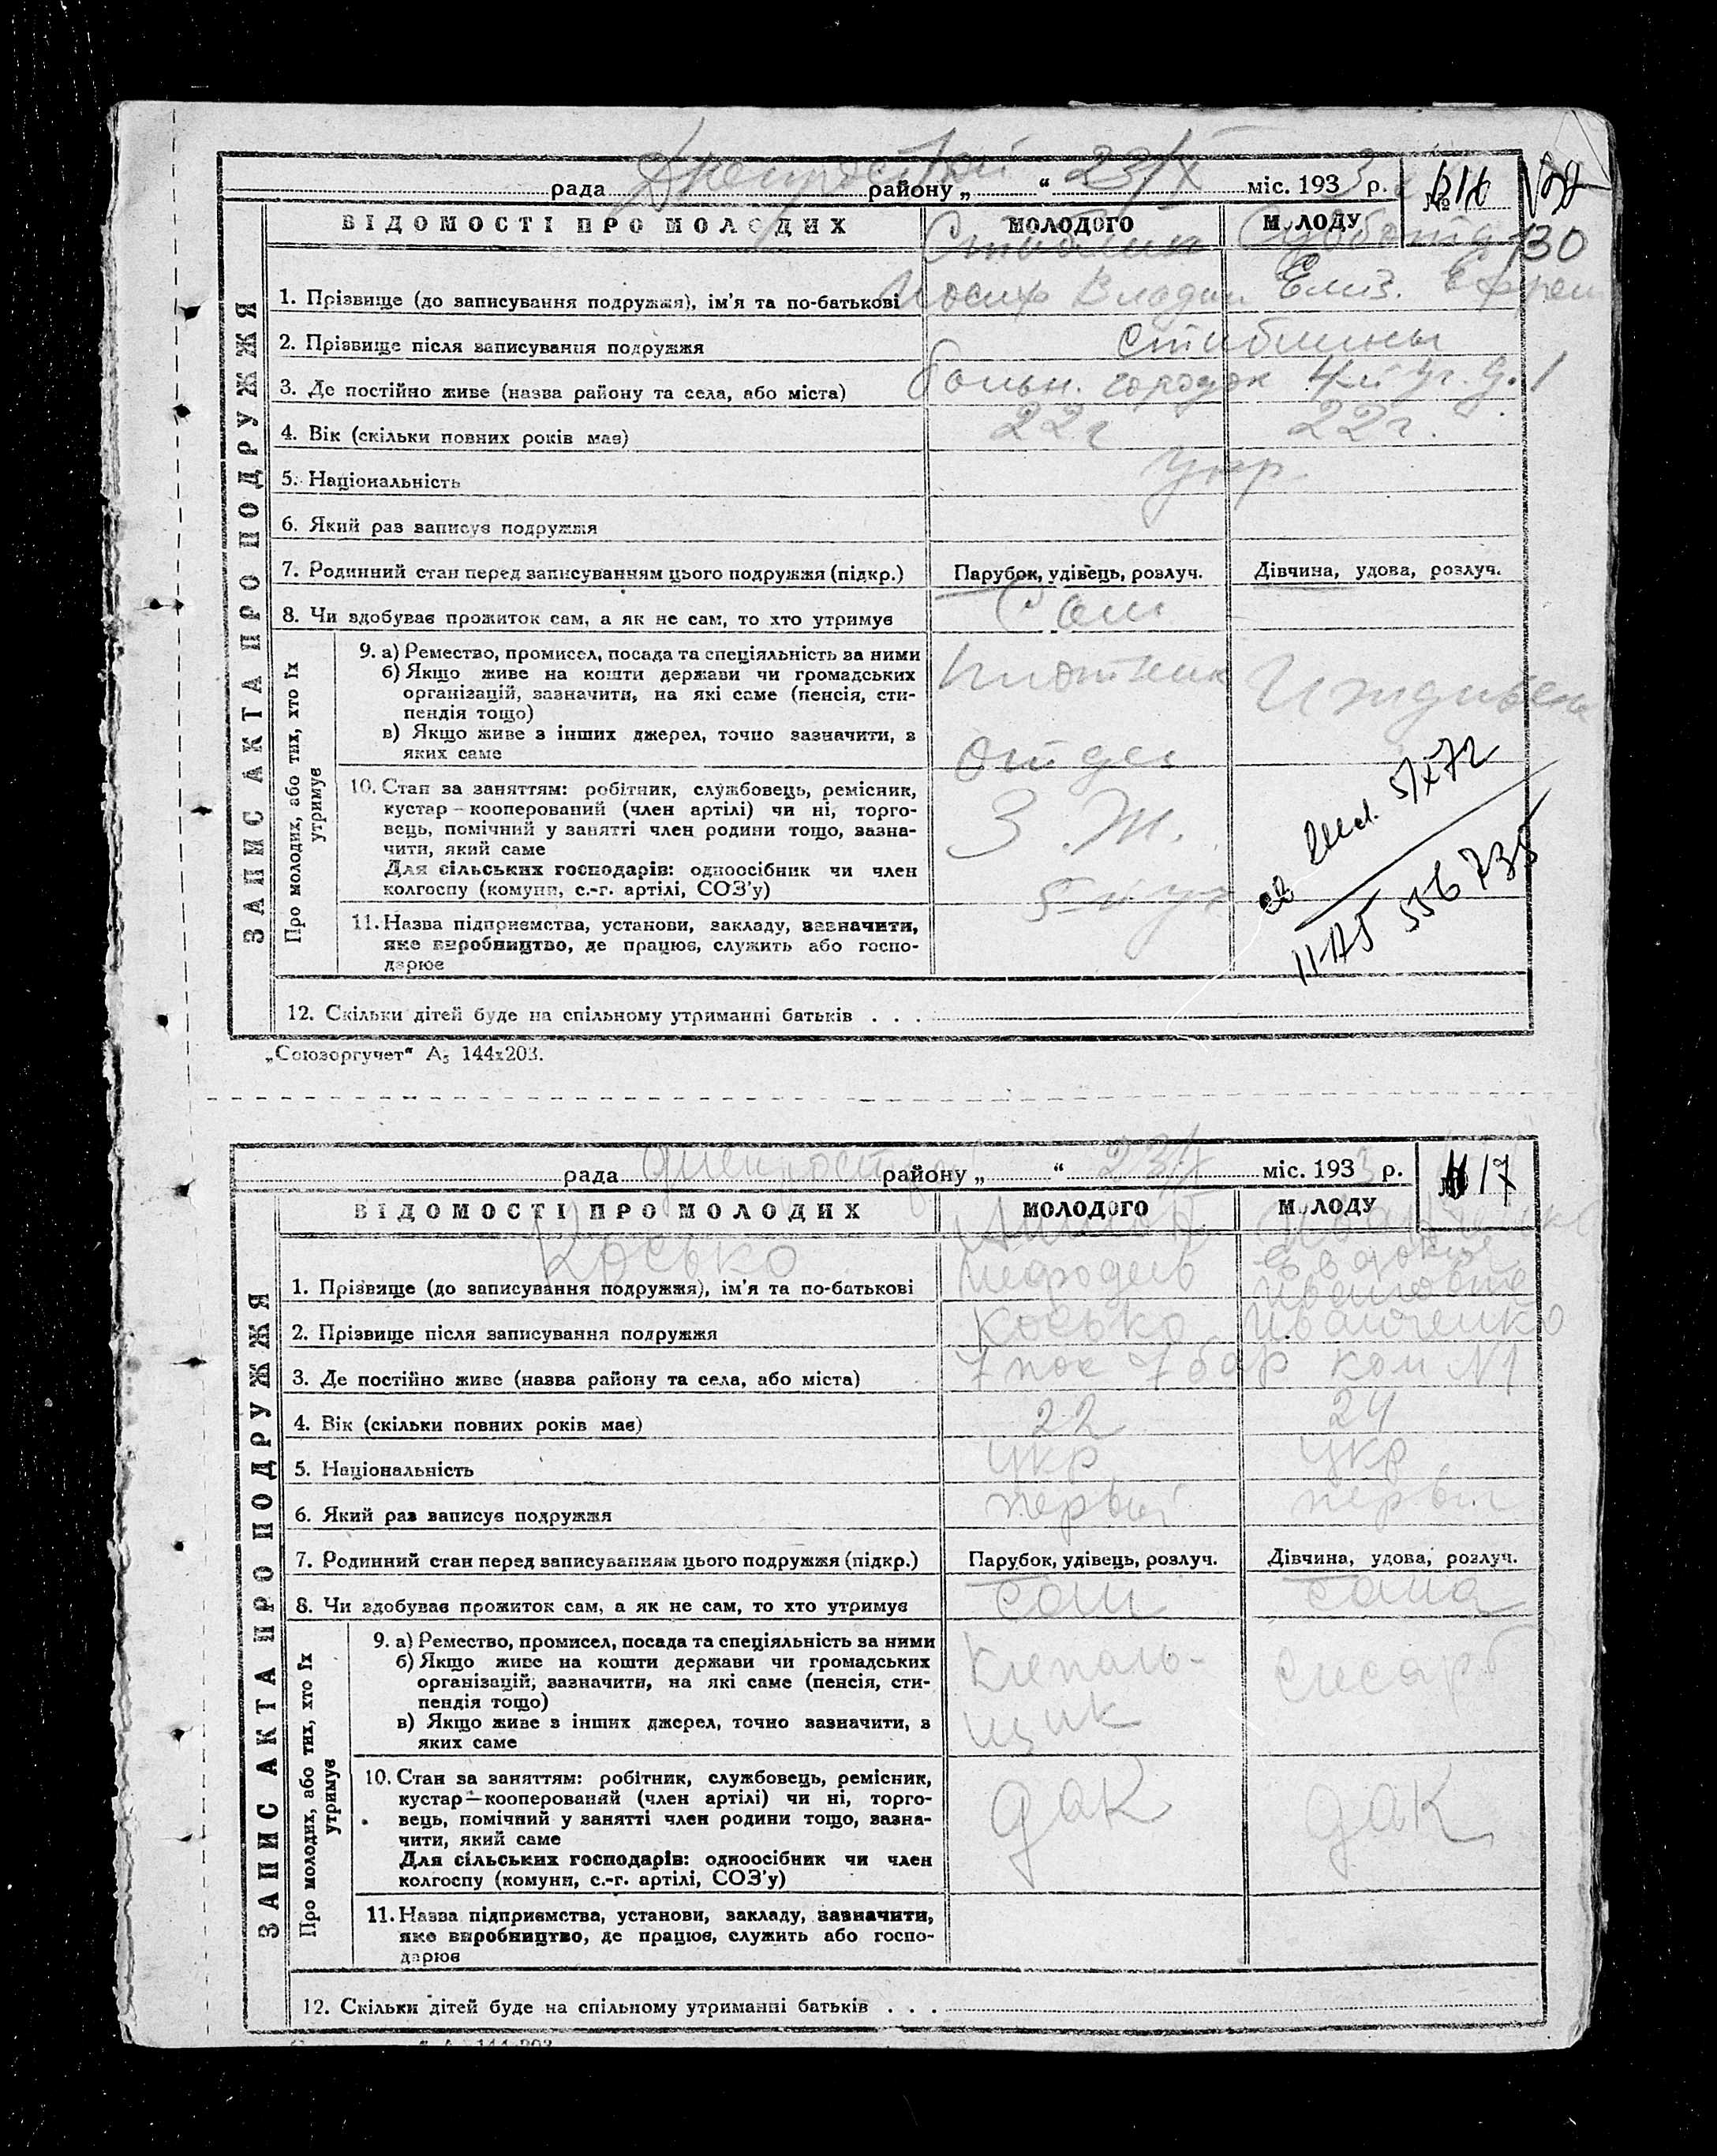 рада Днепрострой району „ “ 23/X міс. 1933 р. № 16
130
ВІДОМОСТІ ПРО МОЛОДИХ МОЛОДОГО МОЛОДУ
ЗАПИС АКТА ПРО ПОДРУЖЖЯ
1. Прізвище (до записування подружжя), ім'я та по-батькові Иосиф Владим Елиз. Ефрем
2. Прізвище після записування подружжя Стиблины
3. Де постійно живе (назва району та села, або міста) больн. городок 4-й уч. д. 1
4. Вік (скільки повних років має) 22 г 22 г.
5. Національність укр.
6. Який раз записує подружжя
7. Родинний стан перед записуванням цього подружжя (підкр.) Парубок, удівець, розлуч. Дівчина, удова, розлуч.
8. Чи здобуває прожиток сам, а як не сам, то хто утримує Сам
Про молодих, або тих, хто їх утримує
9. а) Ремество, промисел, посада та спеціяльність за ними Плотник Иждивен
б) Якщо живе на кошти держави чи громадських
організацій, зазначити, на які саме (пенсія, сти-
пендія тощо)
в) Якщо живе з інших джерел, точно зазначити, з
яких саме отдел
10. Стан за заняттям: робітник, службовець, ремісник,
кустар—кооперований (член артілі) чи ні, торго-
вець, помічний у занятті член родини тощо, зазна-
чити, який саме
Для сільських господарів: одноосібник чи член
колгоспу (комуни, с.-г. артілі, СОЗ'у)
З. Ж.
5-й уч
5/X 72
556735
11. Назва підприємства, установи, закладу, зазначити,
яке виробництво, де працює, служить або госпо-
дарює
12. Скільки дітей буде на спільному утриманні батьків . . .
„Союзоргучет“ А5 144х203.
рада Днепрострой району „ “ 23/X міс. 1933 р. № 17
ВІДОМОСТІ ПРО МОЛОДИХ МОЛОДОГО МОЛОДУ
ЗАПИС АКТА ПРО ПОДРУЖЖЯ
Коська
1. Прізвище (до записування подружжя), ім'я та по-батькові
2. Прізвище після записування подружжя Коська Иванченко
3. Де постійно живе (назва району та села, або міста) 7 пос 7 бар ком N1
4. Вік (скільки повних років має) 22 24
5. Національність укр укр
6. Який раз записує подружжя первый первый
7. Родинний стан перед записуванням цього подружжя (підкр.) Парубок, удівець, розлуч. Дівчина, удова, розлуч.
8. Чи здобуває прожиток сам, а як не сам, то хто утримує сам сама
Про молодих, або тих, хто їх утримує
9. а) Ремество, промисел, посада та спеціяльність за ними
б) Якщо живе на кошти держави чи громадських
організацій, зазначити, на які саме (пенсія, сти-
пендія тощо)
в) Якщо живе з інших джерел, точно зазначити, з
яких саме
Клепаль-
щик
слесарь
10. Стан за заняттям: робітник, службовець, ремісник,
кустар—кооперований (член артілі) чи ні, торго-
вець, помічний у занятті член родини тощо, зазна-
чити, який саме
Для сільських господарів: одноосібник чи член
колгоспу (комуни, с.-г. артілі, СОЗ'у)
ДАК ДАК
11. Назва підприємства, установи, закладу, зазначити,
яке виробництво, де працює, служить або госпо-
дарює
12. Скільки дітей буде на спільному утриманні батьків . . .